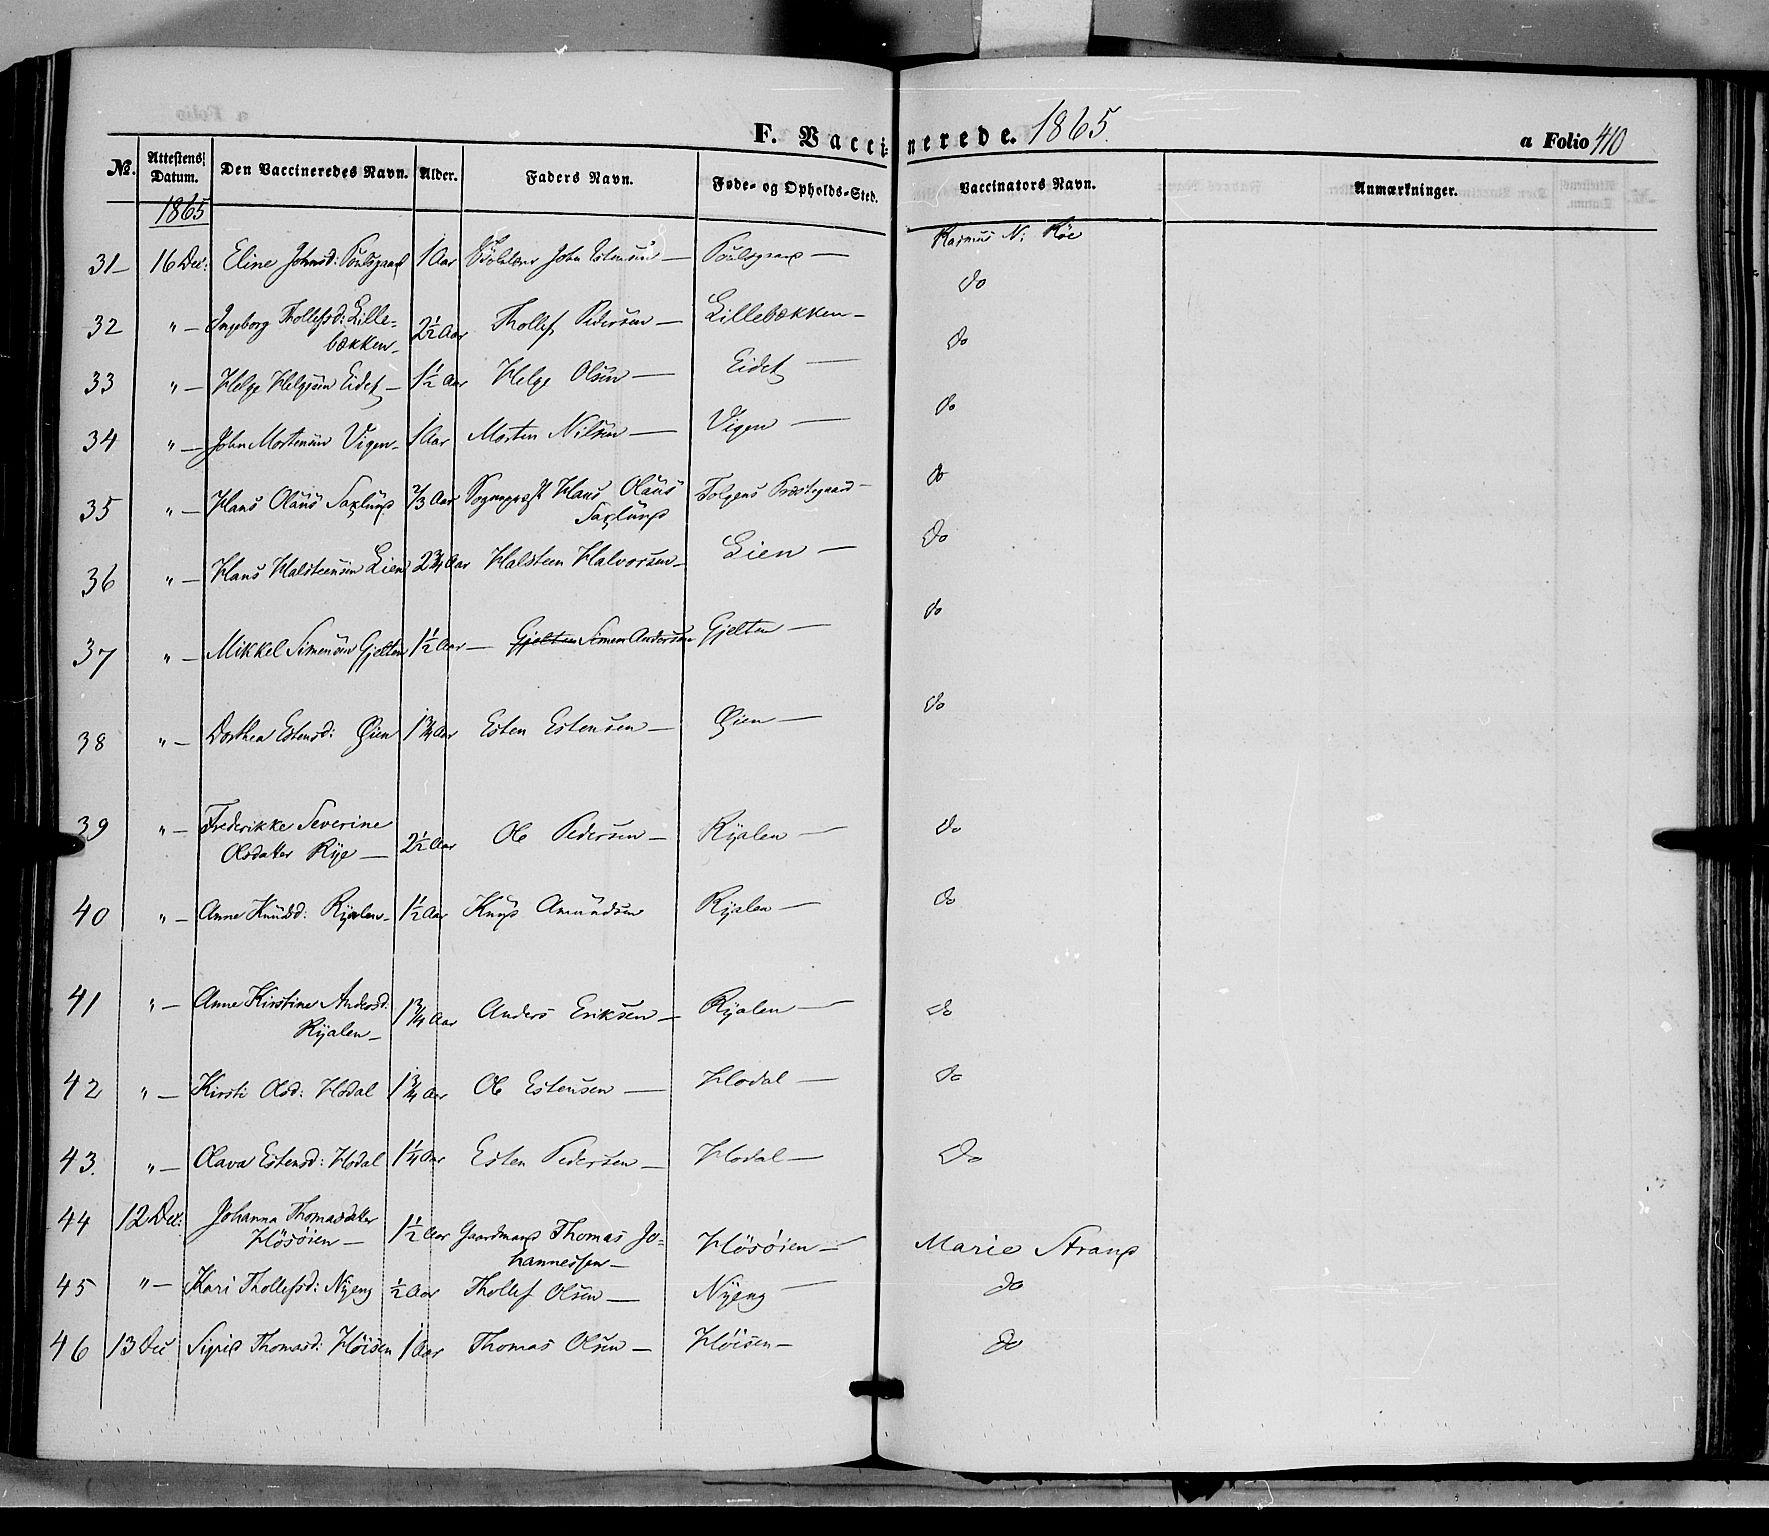 F. Vaccinerede. 1865.
a Folio 410
No. Attestens Datum. Den Vaccineredes Navn. Alder. Faders Navn. Føde- og Opholds-Sted. Vaccinators Navn. Anmærkninger.
1865
31 – 16 Dec: Eline Johnsd: 1 Aar John Estensen – Rasmus N: Röe
32 " – Ingeborg Thollefsd: Lille- 2½ Aar Thollef Pedersen – Lillebækken – do
bækken –
33 " – Helge Helgesen Eidet – 1½ Aar Helge Olsen – Eidet – do
34 " – John Mortensen Vigen – 1 Aar Morten Nilsen – Vigen – do
35 " – Hans Olaus Saxlund 2/3 Aar Sognepræst Hans Olaus Tolgens Præstegaard – do
Saxlund
36 " – Hans Halsteensen Lien 2¾ Aar Halsteen Halvorsen – Lien – do
37 " – Mikkel Simensen Gjelten 1½ Aar – Gjelten Simen Andersen Gjelten – do
38 " – Dorthea Estensd: Øien 1¾ Aar Esten Estensen – Øien – do
39 " – Frederikke Severine 2½ Aar Ole Pedersen – Ryalen – do
Olsdatter Rye –
40 " – Anne Knudsd: Ryalen – 1½ Aar Knud Amundsen Ryalen – do
41 " – Anne Kirstine Andersd: 1¾ Aar Anders Eriksen – Ryalen – do
Ryalen –
42 " – Kirsti Olsd: Hodal 1¾ Aar Ole Estensen – Hodal – do
43. " – Olava Estensd: Hodal 1¼ Aar Esten Pedersen – Hodal – Do
44 12 Dec: Johanna Thomasdatter 1½ Aar Gaardmand Thomas Jo- Høsøien – Marie Strand
Høsøien – hannessen –
45 " – Kari Thollefsd: Nyeng ½ Aar Thollef Olsen – Nyeng – do
46 13 Dec Sigrid Thomasd: Høisen 1 Aar Thomas Olsen – Høisen – do